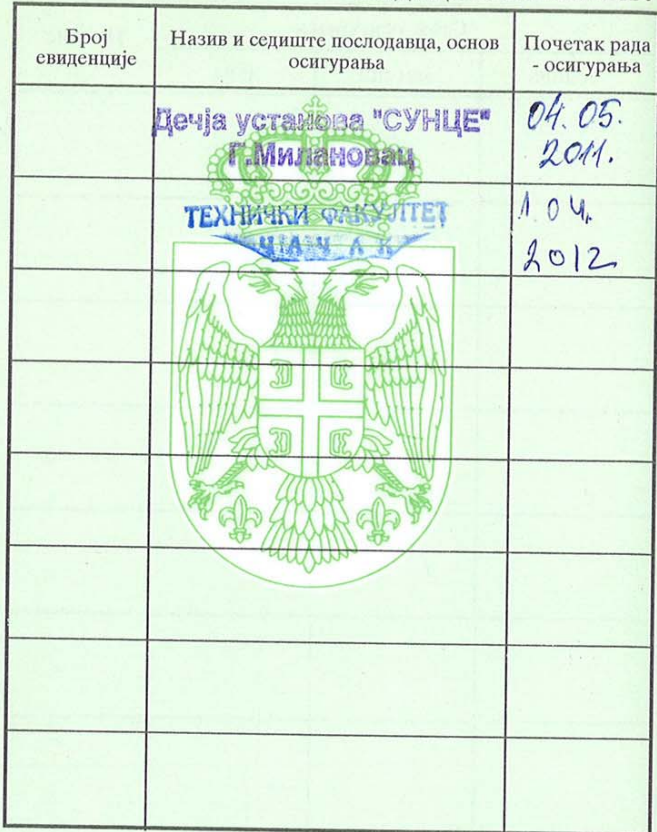 Број
евиденције
Назив и седиште послодавца, основ
осигурања
Почетак рада
- осигурања
Дечја установа "СУНЦЕ"
Г.Милановац
04.05.
2011.
ТЕХНИЧКИ ФАКУЛТЕТ
ЧАЧАК
1.04.
2012